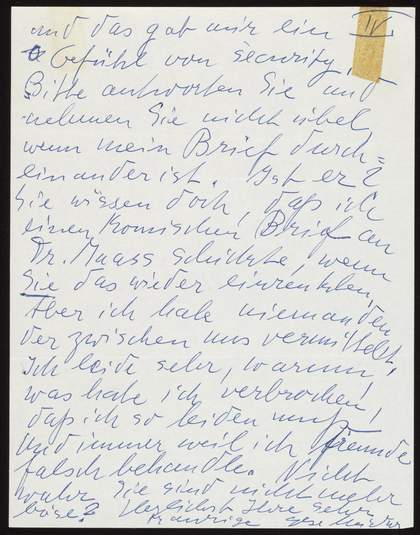 IV
und das gab mir ein
Gefühl von Security,
Bitte antworten Sie und
nehmen Sie nicht übel
wenn mein Brief durch=
einander ist. Ist er?
Sie wissen doch, daß ich
einen komischen Brief an
Dr. Maass schickte, wenn
Sie das wieder einrenkten,
Aber ich habe niemanden
der zwischen uns vermittelt.
Ich leide sehr, warum,
was habe ich verbrochen,
daß ich so leiden muß
Und immer weil ich Freunde
falsch behandle. Nicht
wahr Sie sind nicht mehr
böse? Herzlichst Ihre sehr
traurige